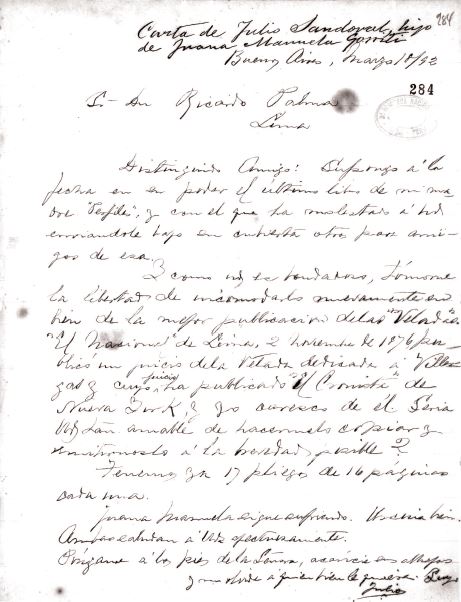 284
Carta de Julio Sandoval, hijo
de Juana Manuela Gorriti
Buenos Aires, Marzo 18/92
284
Sr. Dn Ricardo Palma
Lima
Distinguido Amigo: Supongo á la
fecha en su poder el último libro de mi ma
dre "Perfiles", y con el que ha molestado á Ud
enviandole bajo su cubierta otro para ami-
gos de esa.
Y como Ud es bondadoso, tómome
la libertad de incomodarlo nuevamente en
bien de la mejor publicacion de las "Veladas".
"El Nacional" de Lima, 2 noviembre de 1876 pu-
blicó un juicio de la Velada dedicada á Ville
gas y cuyo juicio ha publicado "El Cronista" de
Nueva York, y yo caresco de él. Seria
Ud tan amable de hacermelo copiar y
remitirnoslo á la brevedad posible?
Tenemos ya 17 pliegos de 16 páginas
cada una.
Juana Manuela sigue sufriendo. bien.
Ambas saludan á Ud afectuosamente.
Póngame á los pies de la Señora, acaricie sus
y no olvide a quien bien le quiere.
Julio